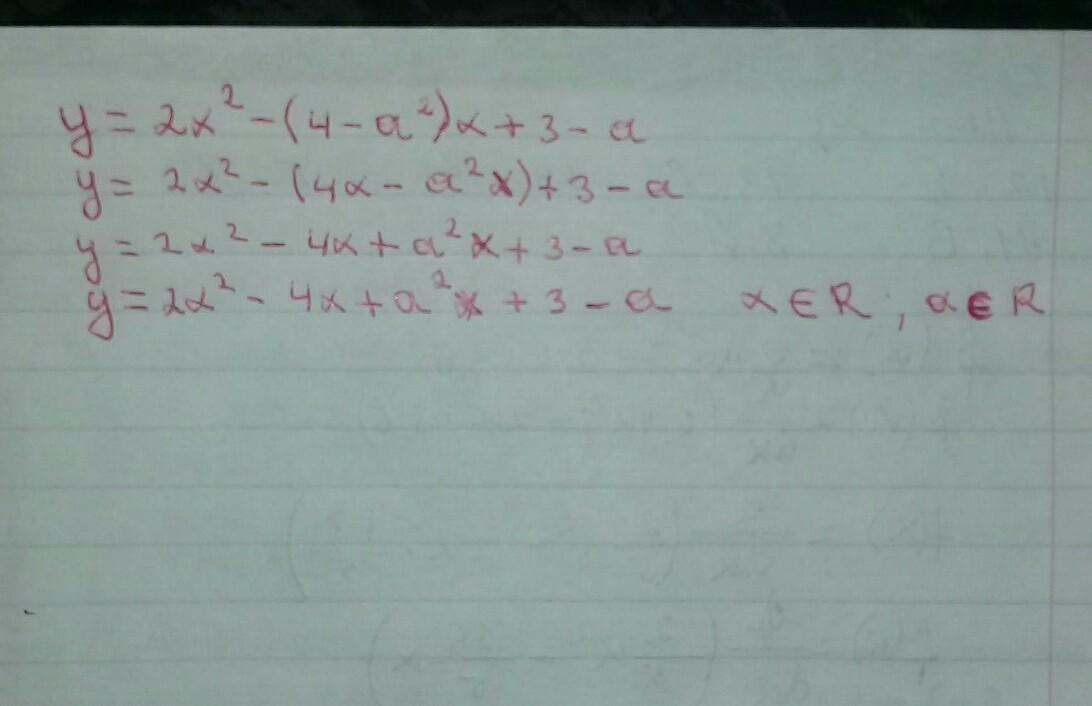 y = 2x² - (4 - a²)x + 3 - a
y = 2x² - (4x - a²x) + 3 - a
y = 2x² - 4x + a²x + 3 - a
y = 2x² - 4x + a²x + 3 - a x ∈ R ; a ∈ R